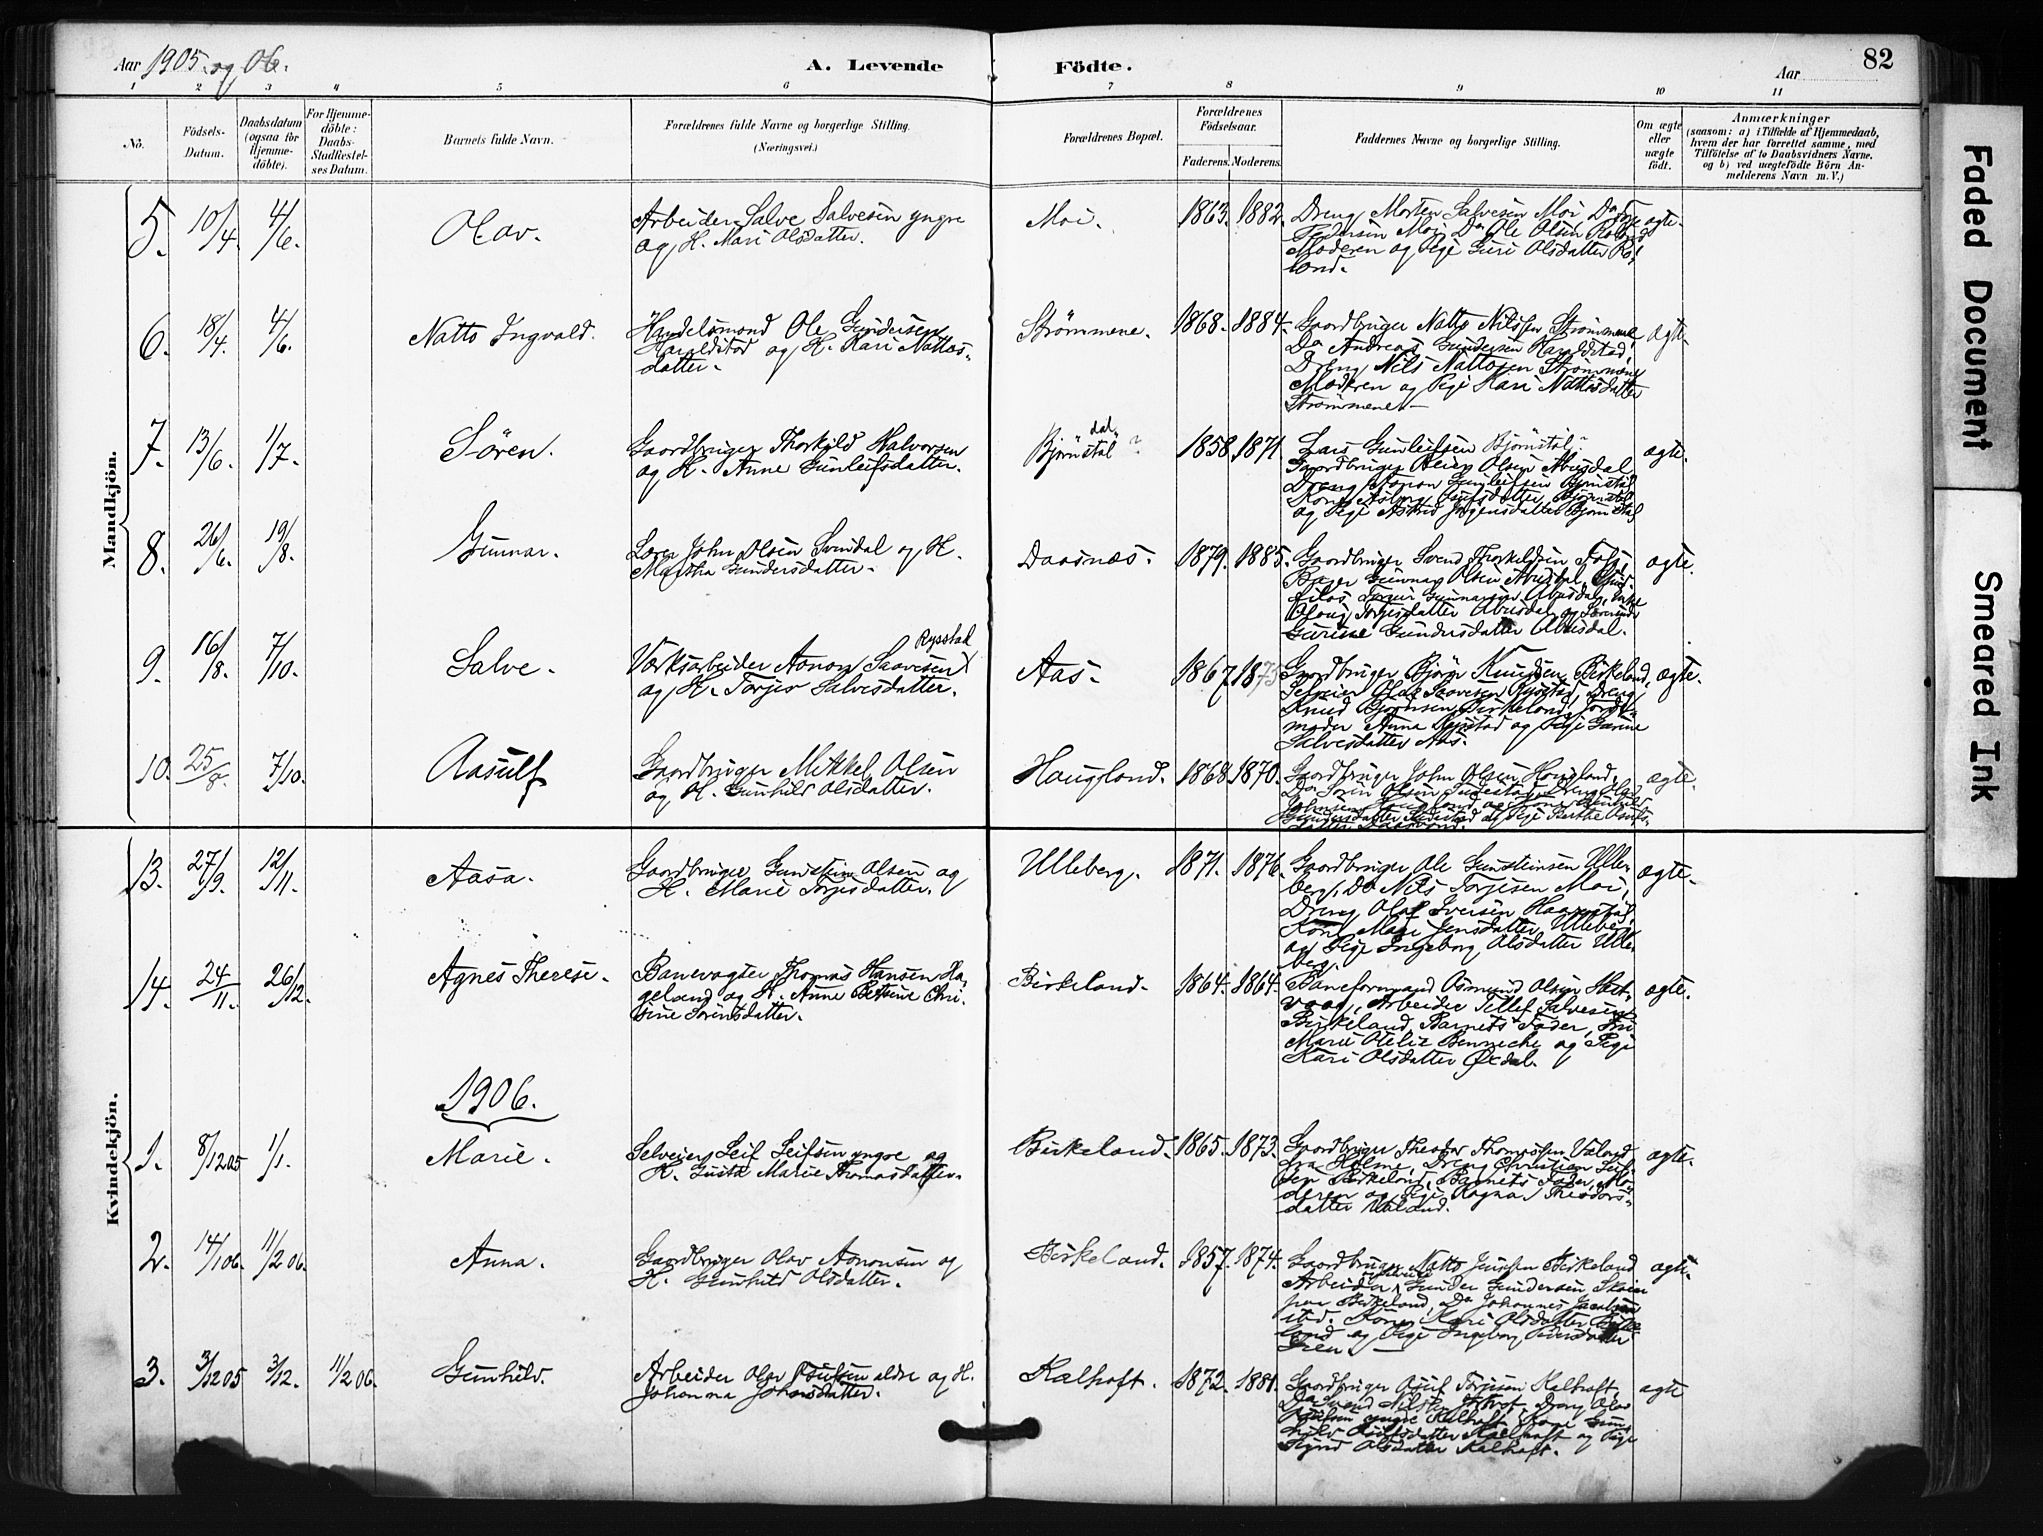 Aar 1905 og 06.
A. Levende Födte.
Aar
82
1 2 3 4 5 6 7 8 9 10 11
No.
Födsels-
Datum.
Daabsdatum
(ogsaa for
Hjemme-
döbte).
For Hjemme-
döbte:
Daabs-
Stadfæstel-
ses Datum.
Barnets fulde Navn.
Forældrenes fulde Navne og borgerlige Stilling.
(Næringsvei.)
Forældrenes Bopæl.
Forældrenes
Födselsaar.
Faderens. Moderens.
Faddernes Navne og borgerlige Stilling.
Om ægte
eller
uægte
födt.
Anmærkninger
(saasom: a) i Tilfælde af Hjemmedaab,
hvem der har forrettet samme, med
Tilföielse af to Daabsvidners Navne.
og b) ved uegtefödte Börn An-
melderens Navn m. V.)
Mandkjön.
5. 10/4. 4/6. Olav.
Arbeider Salve Salvesen yngre
og H. Mari Olsdatter.
Moi. 1863. 1882.
Dreng Morten Salvesen Moi
Pedersen Moi, Do Ole Olsen
Moderen og Pige Guri Olsdatter Ro-
land.
ægte.
6. 18/4. 4/6. Natto Ingvald.
Handelsmand Ole Gundersen
Haraldstad og H. Kari Nattos-
datter.
Strømmene. 1868. 1884.
Gaardbruger Natto Nilssen Strømmene
Do Andreas Gundersen Haraldstad,
Dreng Nils Nattosen Strømmene
Moderen og Pige Kari Nattosdatter
Strømmene
ægte.
7. 13/6. 1/7. Sören.
Gaardbruger Thorkild Halvorsen
og H. Anne Gunleifsdatter.
Bjørnstøl dal ? 1858. 1871.
Lars Gunleifsen Bjørnstøl,
Gaardbruger Olsen Abusdal
Dreng Gunleifsen Bjørnstøl
Kone
og Pige Astrid Bjørnstøl
ægte.
8. 26/6. 19/8. Gunnar.
Lærer John Olsen Svindal og H.
Martha Gundersdatter.
Daasnæs. 1879. 1885.
Gaardbruger Svend Thorkildsen
Gunnar Olsen Abusdal,
Gunnarsen Abusdal, Enke
Torjusdatter Abusdal og
Gurine Gundersdatter Abusdal.
ægte.
9. 16/8. 7/10. Salve.
Rysstad
Værksarbeider Aanon Saavesen
og H. Torjer Salvesdatter.
Aas. 1867. 1875
Gaardbruger Bjørn Knudsen Birkeland,
Selveier Olav Saavesen Rysstad, Dreng
Knud Bjørnsen Birkeland, Jord-
moder Anna Rysstad og Pige Gurine
Salvesdatter Aas.
ægte.
10. 25/8. 7/10. Aasulf
Gaardbruger Mikkel Olsen
og H. Gunhild Olsdatter.
Haugland. 1868. 1870.
Gaardbruger John Olsen Haugland,
Do Olsen
Johnsen Haugland og Kone
Gundersdatter og Pige Berthe
datter
ægte.
Kvindekjön.
13. 27/9. 12/11. Aasa.
Gaardbruger Gunstein Olsen og
H. Marie Torjesdatter.
Ulleberg. 1871. 1876.
Gaardbruger Ole Gunsteinsen Ulle-
berg, Do Nils Torjesen Moi,
Dreng Olaf Iversen
Kone Mari Jensdatter Ulleberg
og Pige Ingeborg Olsdatter Ulle-
berg.
ægte.
14. 24/11. 26/12. Agnes Therese.
Banevogter Thomas Hansen Ha-
geland og H. Anne Betsine Chri-
stine Sørensdatter.
Birkeland. 1864. 1864.
Baneformand Osmund Olsen
Arbeider Tellef Salvesen
Birkeland, Barnets Fader, Fru
Marie Otelie Bennecke og Pige
Kari Olsdatter Øxdal.
ægte.
1906.
1. 8/12 05 1/1. Marie.
Selveier Leif Leifsen yngre og
H. Gusta Marie Thomasdatter.
Birkeland. 1865. 1873.
Gaardbruger Theodor Thomassen Valand
fra Holme, Dreng Christian Leif-
sen Birkeland, Barnets Fader, Mo-
deren og Pige Ragna Theodors-
datter Valand.
ægte.
2. 14/1 06. 11/2 06. Anna.
Gaardbruger Olav Aanonsen og
H. Gunhild Olsdatter.
Birkeland. 1857. 1874.
Gaardbruger Natto Jenssen Birkeland
Arbeider Gunder Gundersen
paa Birkeland, Do Johannes
Kone Kari Olsdatter Birke-
land og Pige Ingeborg
ægte.
3. 3/12 05 3/12. 11/2 06. Gunhild.
Arbeider Olav Osufsen ældre og H.
Johanna Johansdatter.
Kalhoft. 1872. 1881.
Gaardbruger Osuf Torjesen Kalhoft,
Do Nilsen Dreng Olav
Osufsen yngre Kalhoft, Kone Gun-
hild Kalhoft og Pige
Sigrid Olsdatter Kalhoft.
ægte
Faded Document
Smeared Ink